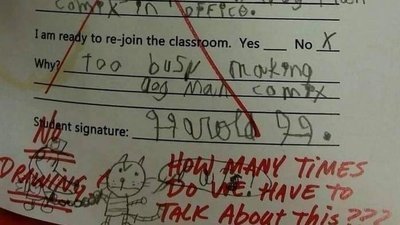 comix in office.
I am ready to re-join the classroom. Yes ___ No X
Why? too busy making
dog man comix
Student signature: Harold H.
No
DRAWING!
HOW MANY TIMES
DO WE HAVE TO
TALK ABOUT THIS???